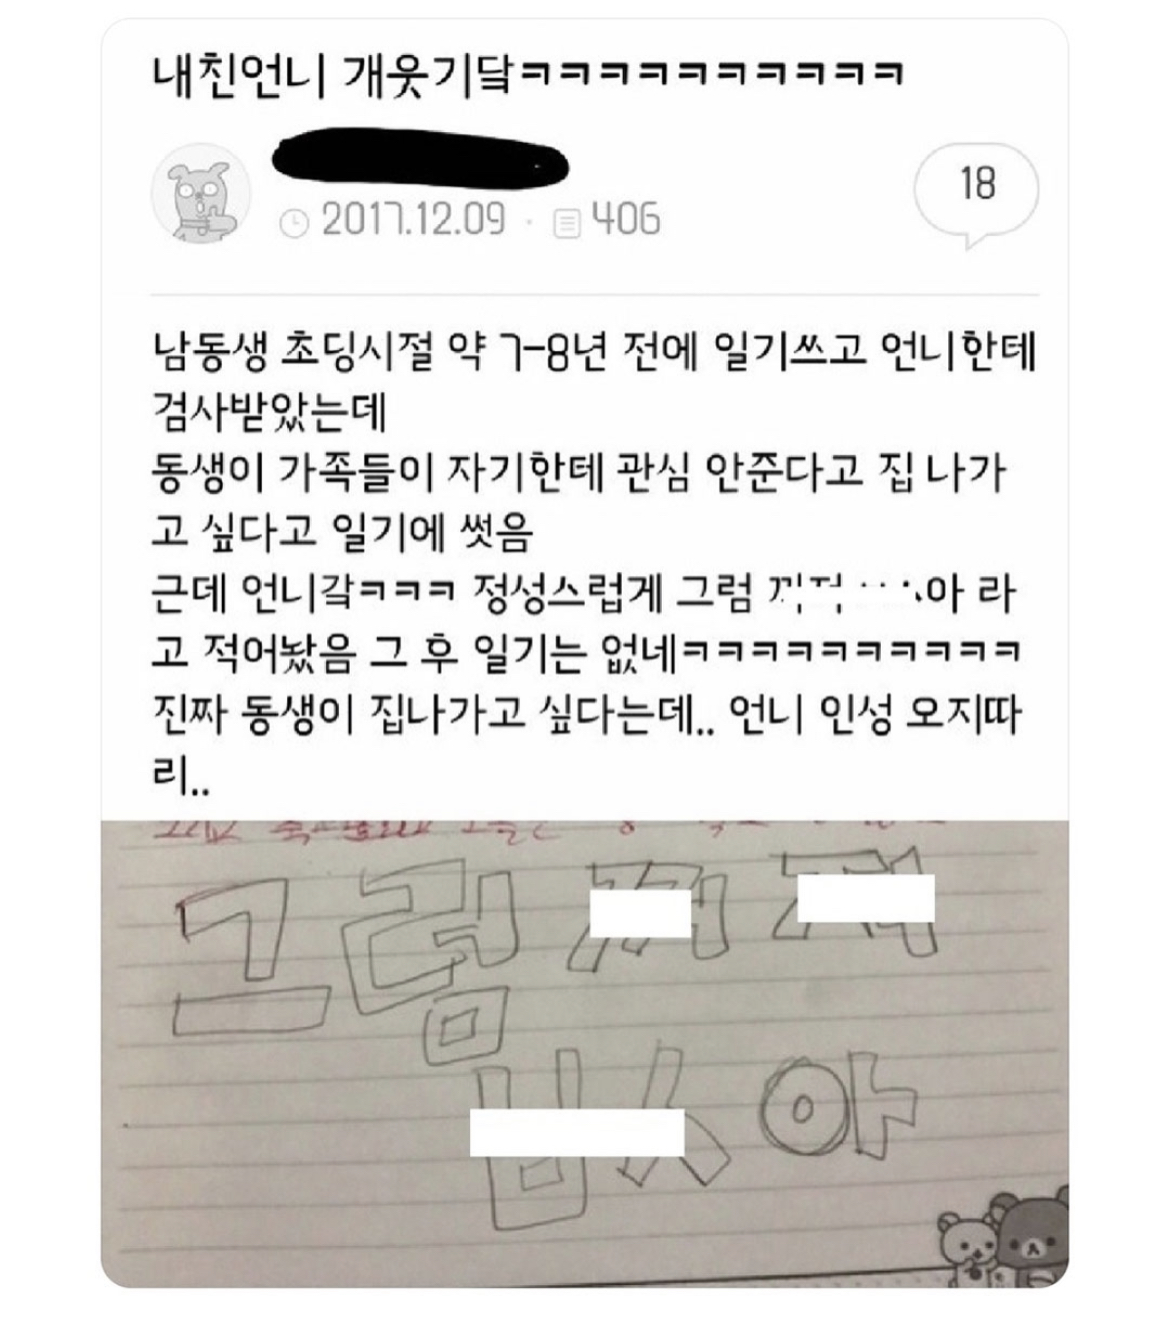 내친언니 개웃기닼ㅋㅋㅋㅋㅋㅋㅋㅋㅋㅋ
2017.12.09 · 406
18
남동생 초딩시절 약 7-8년 전에 일기쓰고 언니한테
검사받았는데
동생이 가족들이 자기한테 관심 안준다고 집 나가
고 싶다고 일기에 썻음
근데 언니갘ㅋㅋㅋ 정성스럽게 그럼 아 라
고 적어놨음 그 후 일기는 없네ㅋㅋㅋㅋㅋㅋㅋㅋㅋ
진짜 동생이 집나가고 싶다는데.. 언니 인성 오지따
리..
그럼
ㅂㅅ아